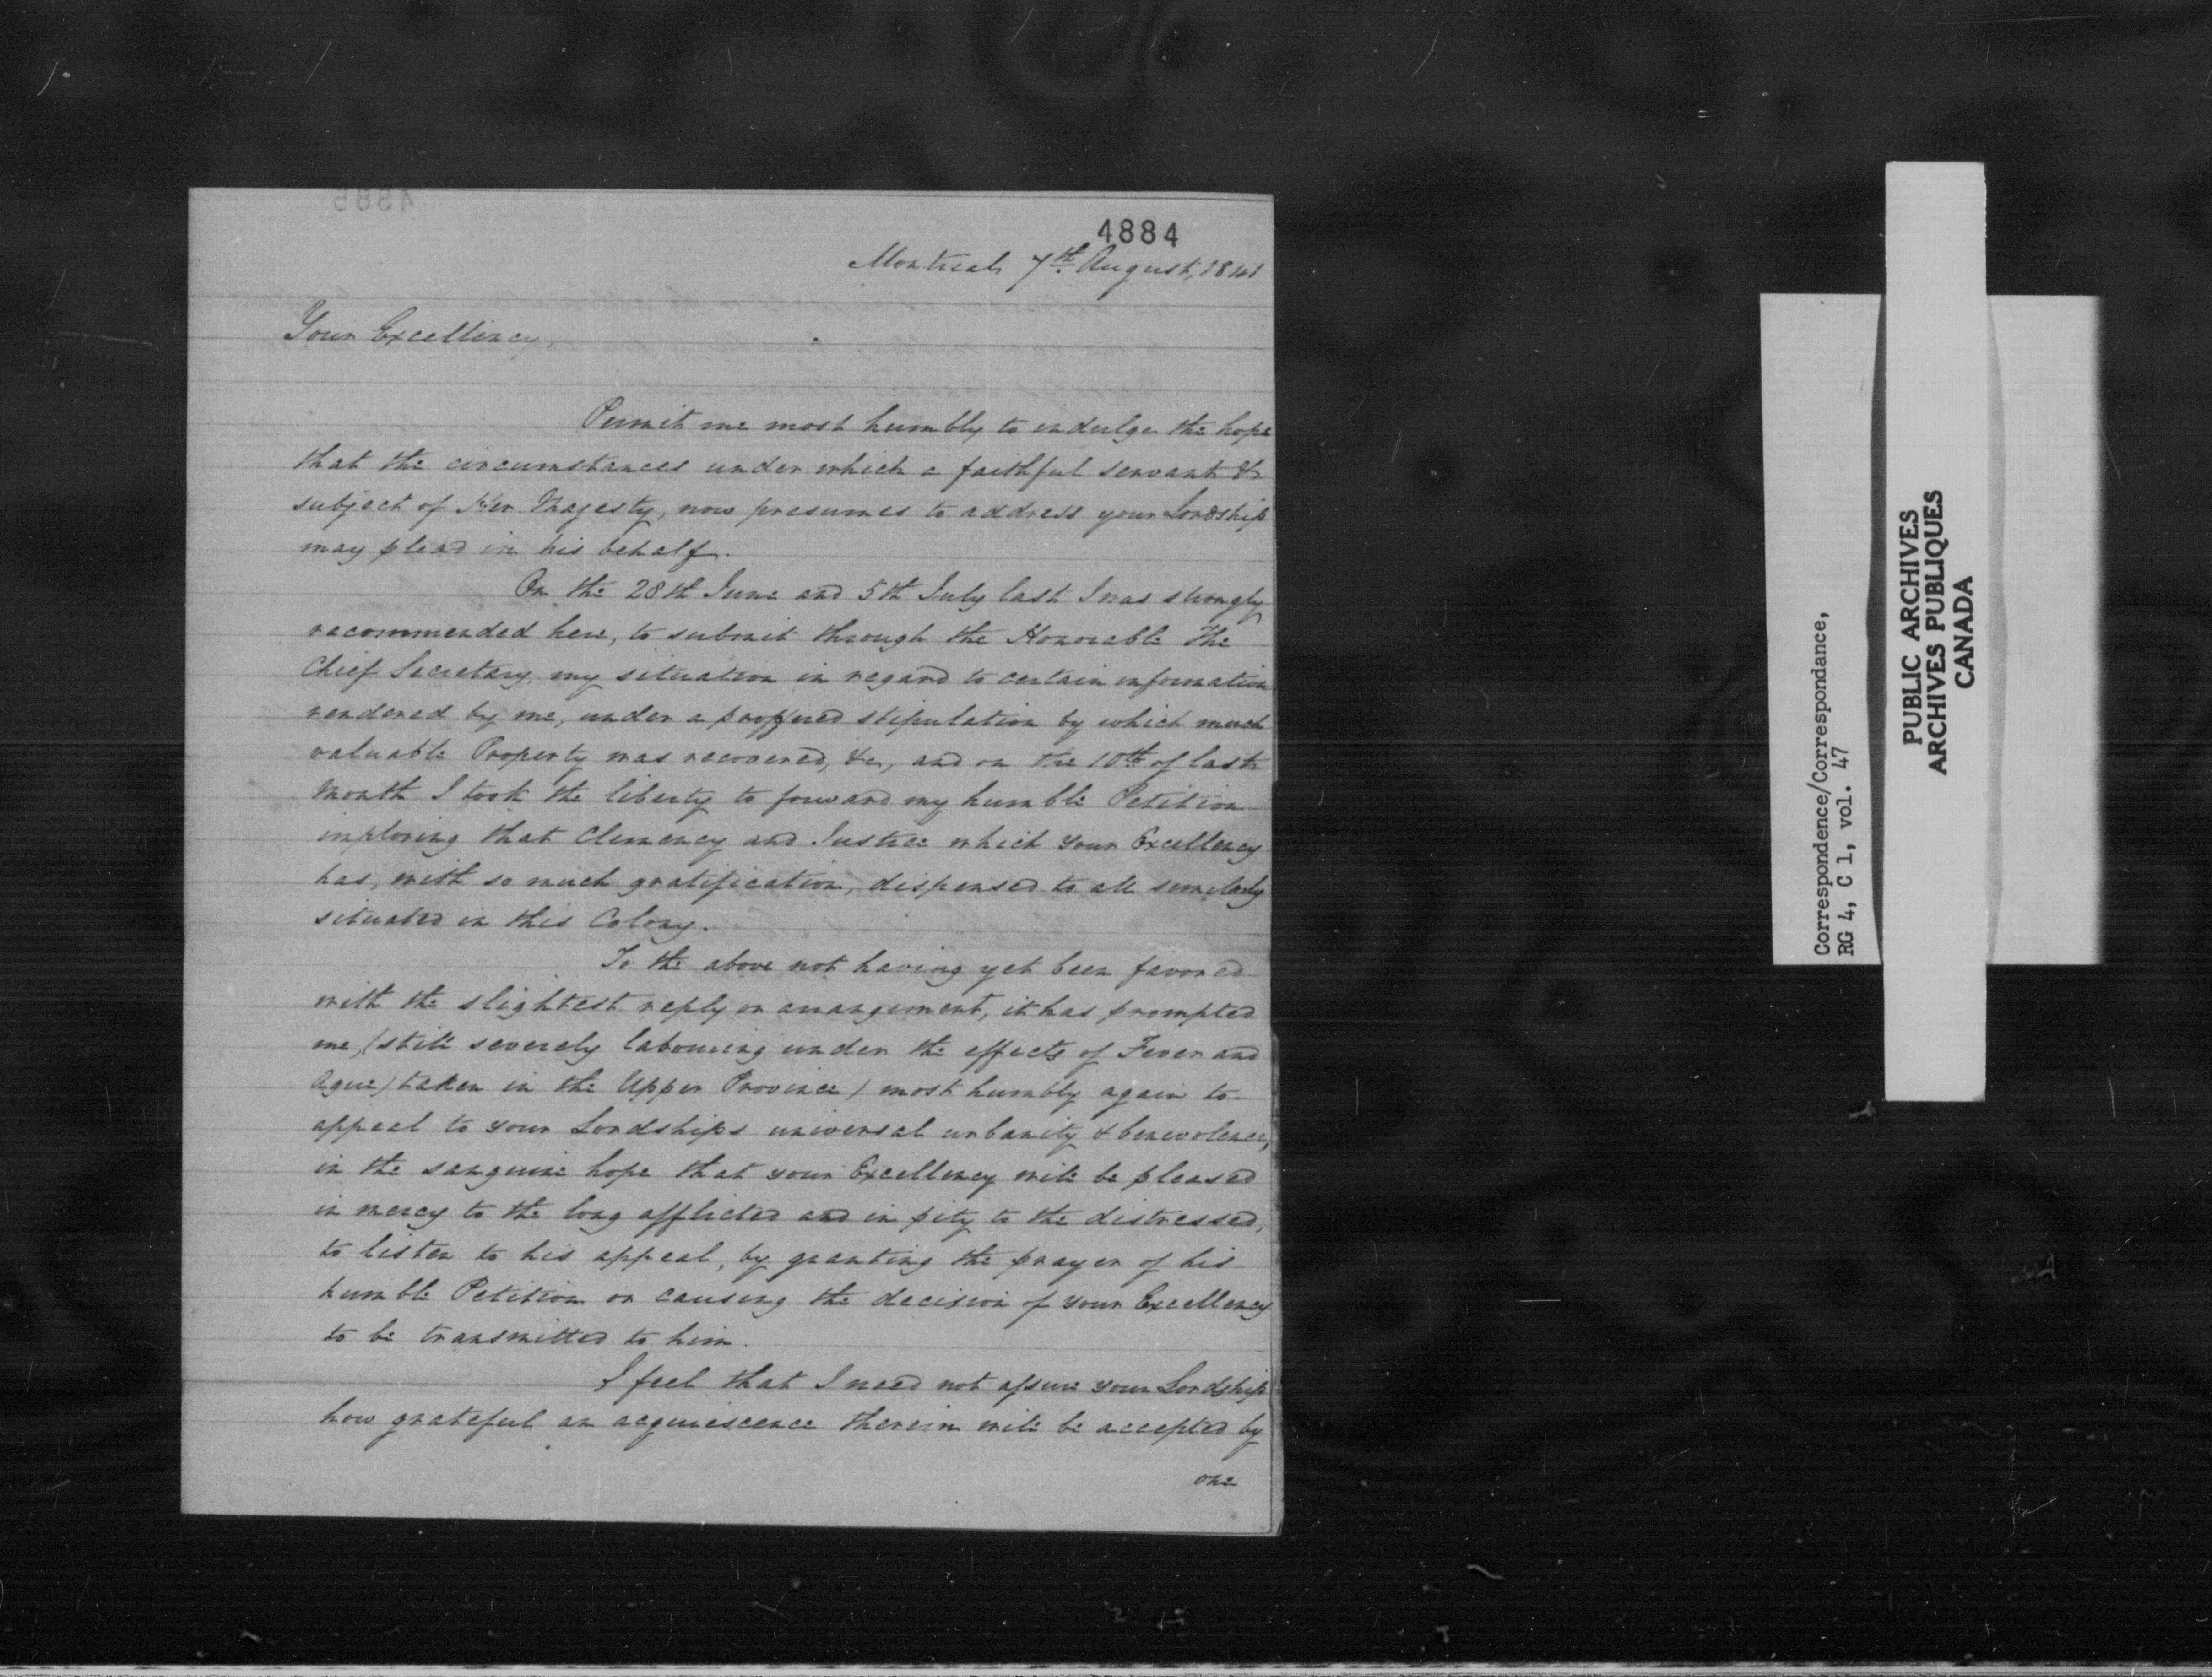 4884
Montreal 7th August, 1841
Your Excellency,
Permit me most humbly to indulge the hope
that the circumstances under which a faithful servant &
subject of Her Majesty, now presumes to address your Lordship
may plead in his behalf.
On the 28th June and 5th July last I was strongly
recommended here, to submit through the Honorable The
Chief Secretary, my situation in regard to certain information
rendered by me, under a proffered stipulation by which much
valuable Property was recovered, &c, and on the 10th of last
Month I took the liberty to forward my humble Petition
imploring that Clemency and Justice which Your Excellency
has, with so much gratification, dispensed to all similarly
situated in this Colony.
To the above not having yet been favored
with the slightest reply or arrangement, it has prompted
me, (still severely labouring under the effects of Fever and
Ague) taken in the Upper Province) most humbly again to
appeal to your Lordships universal urbanity & benevolence,
in the sanguine hope that your Excellency will be pleased
in mercy to the long afflicted and in pity to the distressed,
to listen to his appeal, by granting the prayer of his
humble Petition or causing the decision of your Excellency
to be transmitted to him.
I feel that I need not assure your Lordship
how grateful an acquiescence therein will be accepted by
one
Correspondence/Correspondance,
RG 4, C 1, vol. 47
PUBLIC ARCHIVES
ARCHIVES PUBLIQUES
CANADA